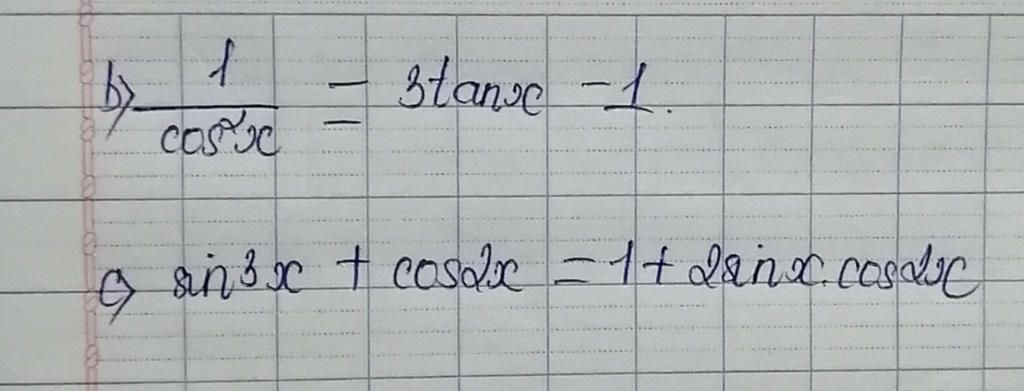 b) 1/cos²x = 3tanx - 1.
c) sin3x + cos2x = 1 + 2sinx.cos2x